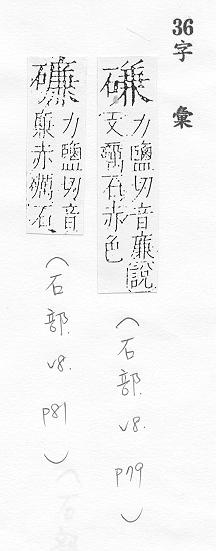 36 字彙
磏 力鹽切音廉說
文礪石赤色
（石部. v8. p79）
力鹽切音
廉赤礪石
（石部. v8. p81）